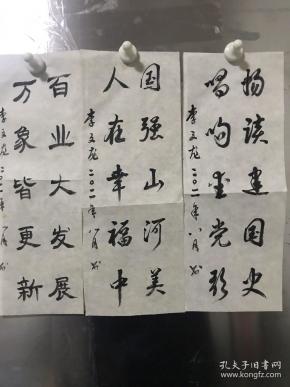 扬谈建国史
唱响爱党歌
李文龙二〇二一年八月书
国强山河美
人在幸福中
李文龙二〇二一年八月书
百业大发展
万象皆更新
李文龙二〇二一年八月书
孔夫子旧书网